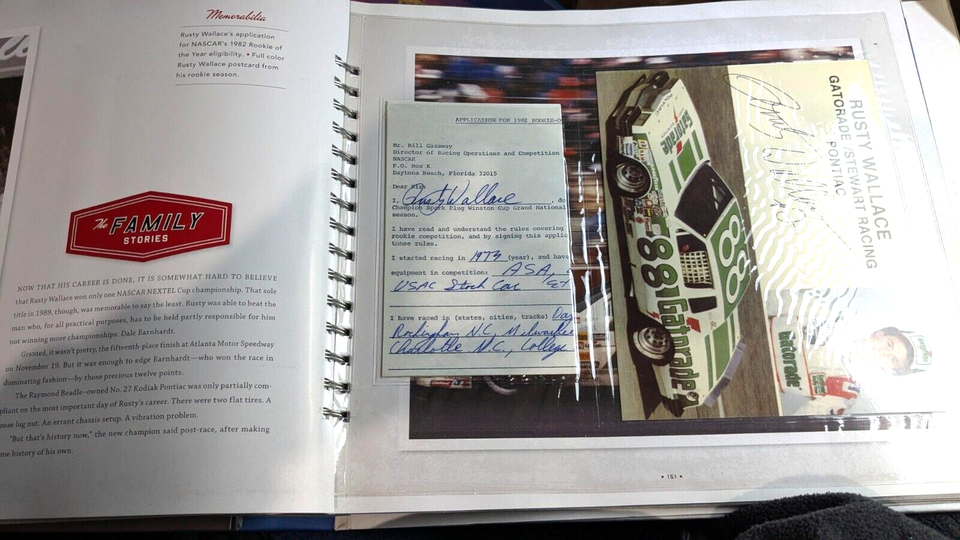 Memorabilia
Rusty Wallace's application
for NASCAR's 1982 Rookie of
the Year eligibility. • Full color
Rusty Wallace postcard from
his rookie season.
The FAMILY
STORIES
NOW THAT HIS CAREER IS DONE, IT IS SOMEWHAT HARD TO BELIEVE
that Rusty Wallace won only one NASCAR NEXTEL Cup championship. That sole
title in 1989, though, was memorable to say the least. Rusty was able to beat the
man who, for all practical purposes, has to be held partly responsible for him
not winning more championships: Dale Earnhardt.
Granted, it wasn't pretty, the fifteenth-place finish at Atlanta Motor Speedway
on November 19. But it was enough to edge Earnhardt—who won the race in
dominating fashion—by those precious twelve points.
The Raymond Beadle–owned No. 27 Kodiak Pontiac was only partially com-
pliant on the most important day of Rusty's career. There were two flat tires. A
oose lug nut. An errant chassis setup. A vibration problem.
"But that's history now," the new champion said post-race, after making
me history of his own.
APPLICATION FOR 1982 ROOKIE-O
Mr. Bill Gazaway
Director of Racing Operations and Competition
NASCAR
P.O. Box K
Daytona Beach, Florida 32015
Dear Sir:
I, Rusty Wallace, do
Champion Spark Plug Winston Cup Grand National
season.
I have read and understand the rules covering
rookie competition, and by signing this applic
those rules.
I started racing in 1973 (year), and have
equipment in competition: ASA,
USAC Stock Car
I have raced in (states, cities, tracks) Day
Rockingham N.C, Milwaukee
Charlotte N.C., College
RUSTY WALLACE
GATORADE/STEWART RACING
PONTIAC
Rusty Wallace
Gatorade
88
88 Gatorade
Gatorade
• 151 •